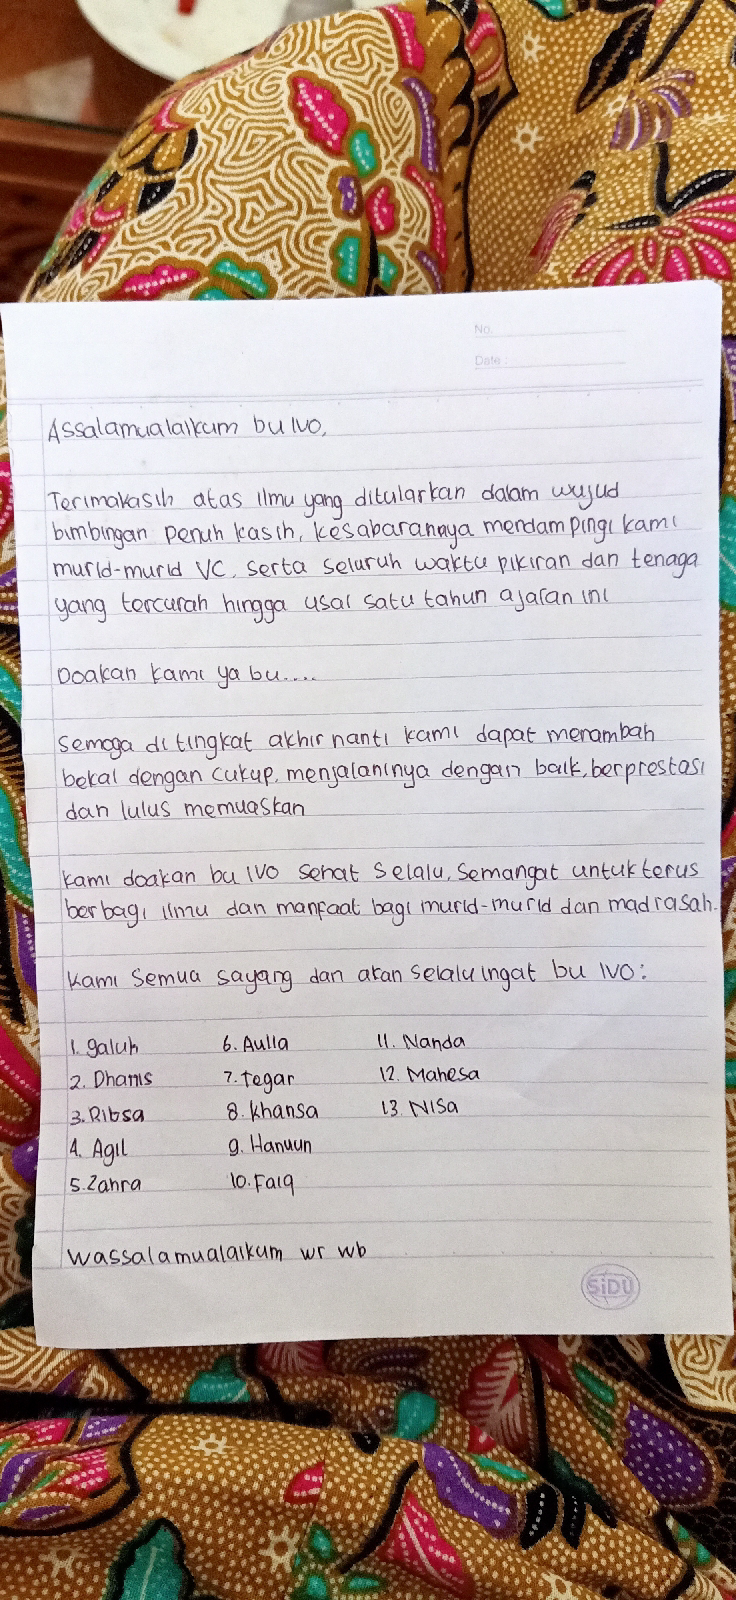 No.
Date :
Assalamualaikum bu Ivo,
Terimakasih atas ilmu yang ditularkan dalam wujud
bimbingan penuh kasih, kesabarannya mendampingi kami
murid-murid VC, serta seluruh waktu pikiran dan tenaga
yang tercurah hingga usai satu tahun ajaran ini
Doakan kami ya bu....
Semoga di tingkat akhir nanti kami dapat merambah
bekal dengan cukup, menjalaninya dengan baik, berprestasi
dan lulus memuaskan
Kami doakan bu Ivo sehat selalu, Semangat untuk terus
berbagi ilmu dan manfaat bagi murid-murid dan madrasah.
Kami Semua sayang dan akan selalu ingat bu Ivo:
1. galuh 6. Aulia 11. Nanda
2. Dhanis 7. tegar 12. Mahesa
3. Ribsa 8. khansa 13. Nisa
4. Agil 9. Hanuun
5. Zahra 10. Faiq
Wassalamualaikum wr wb
SiDU